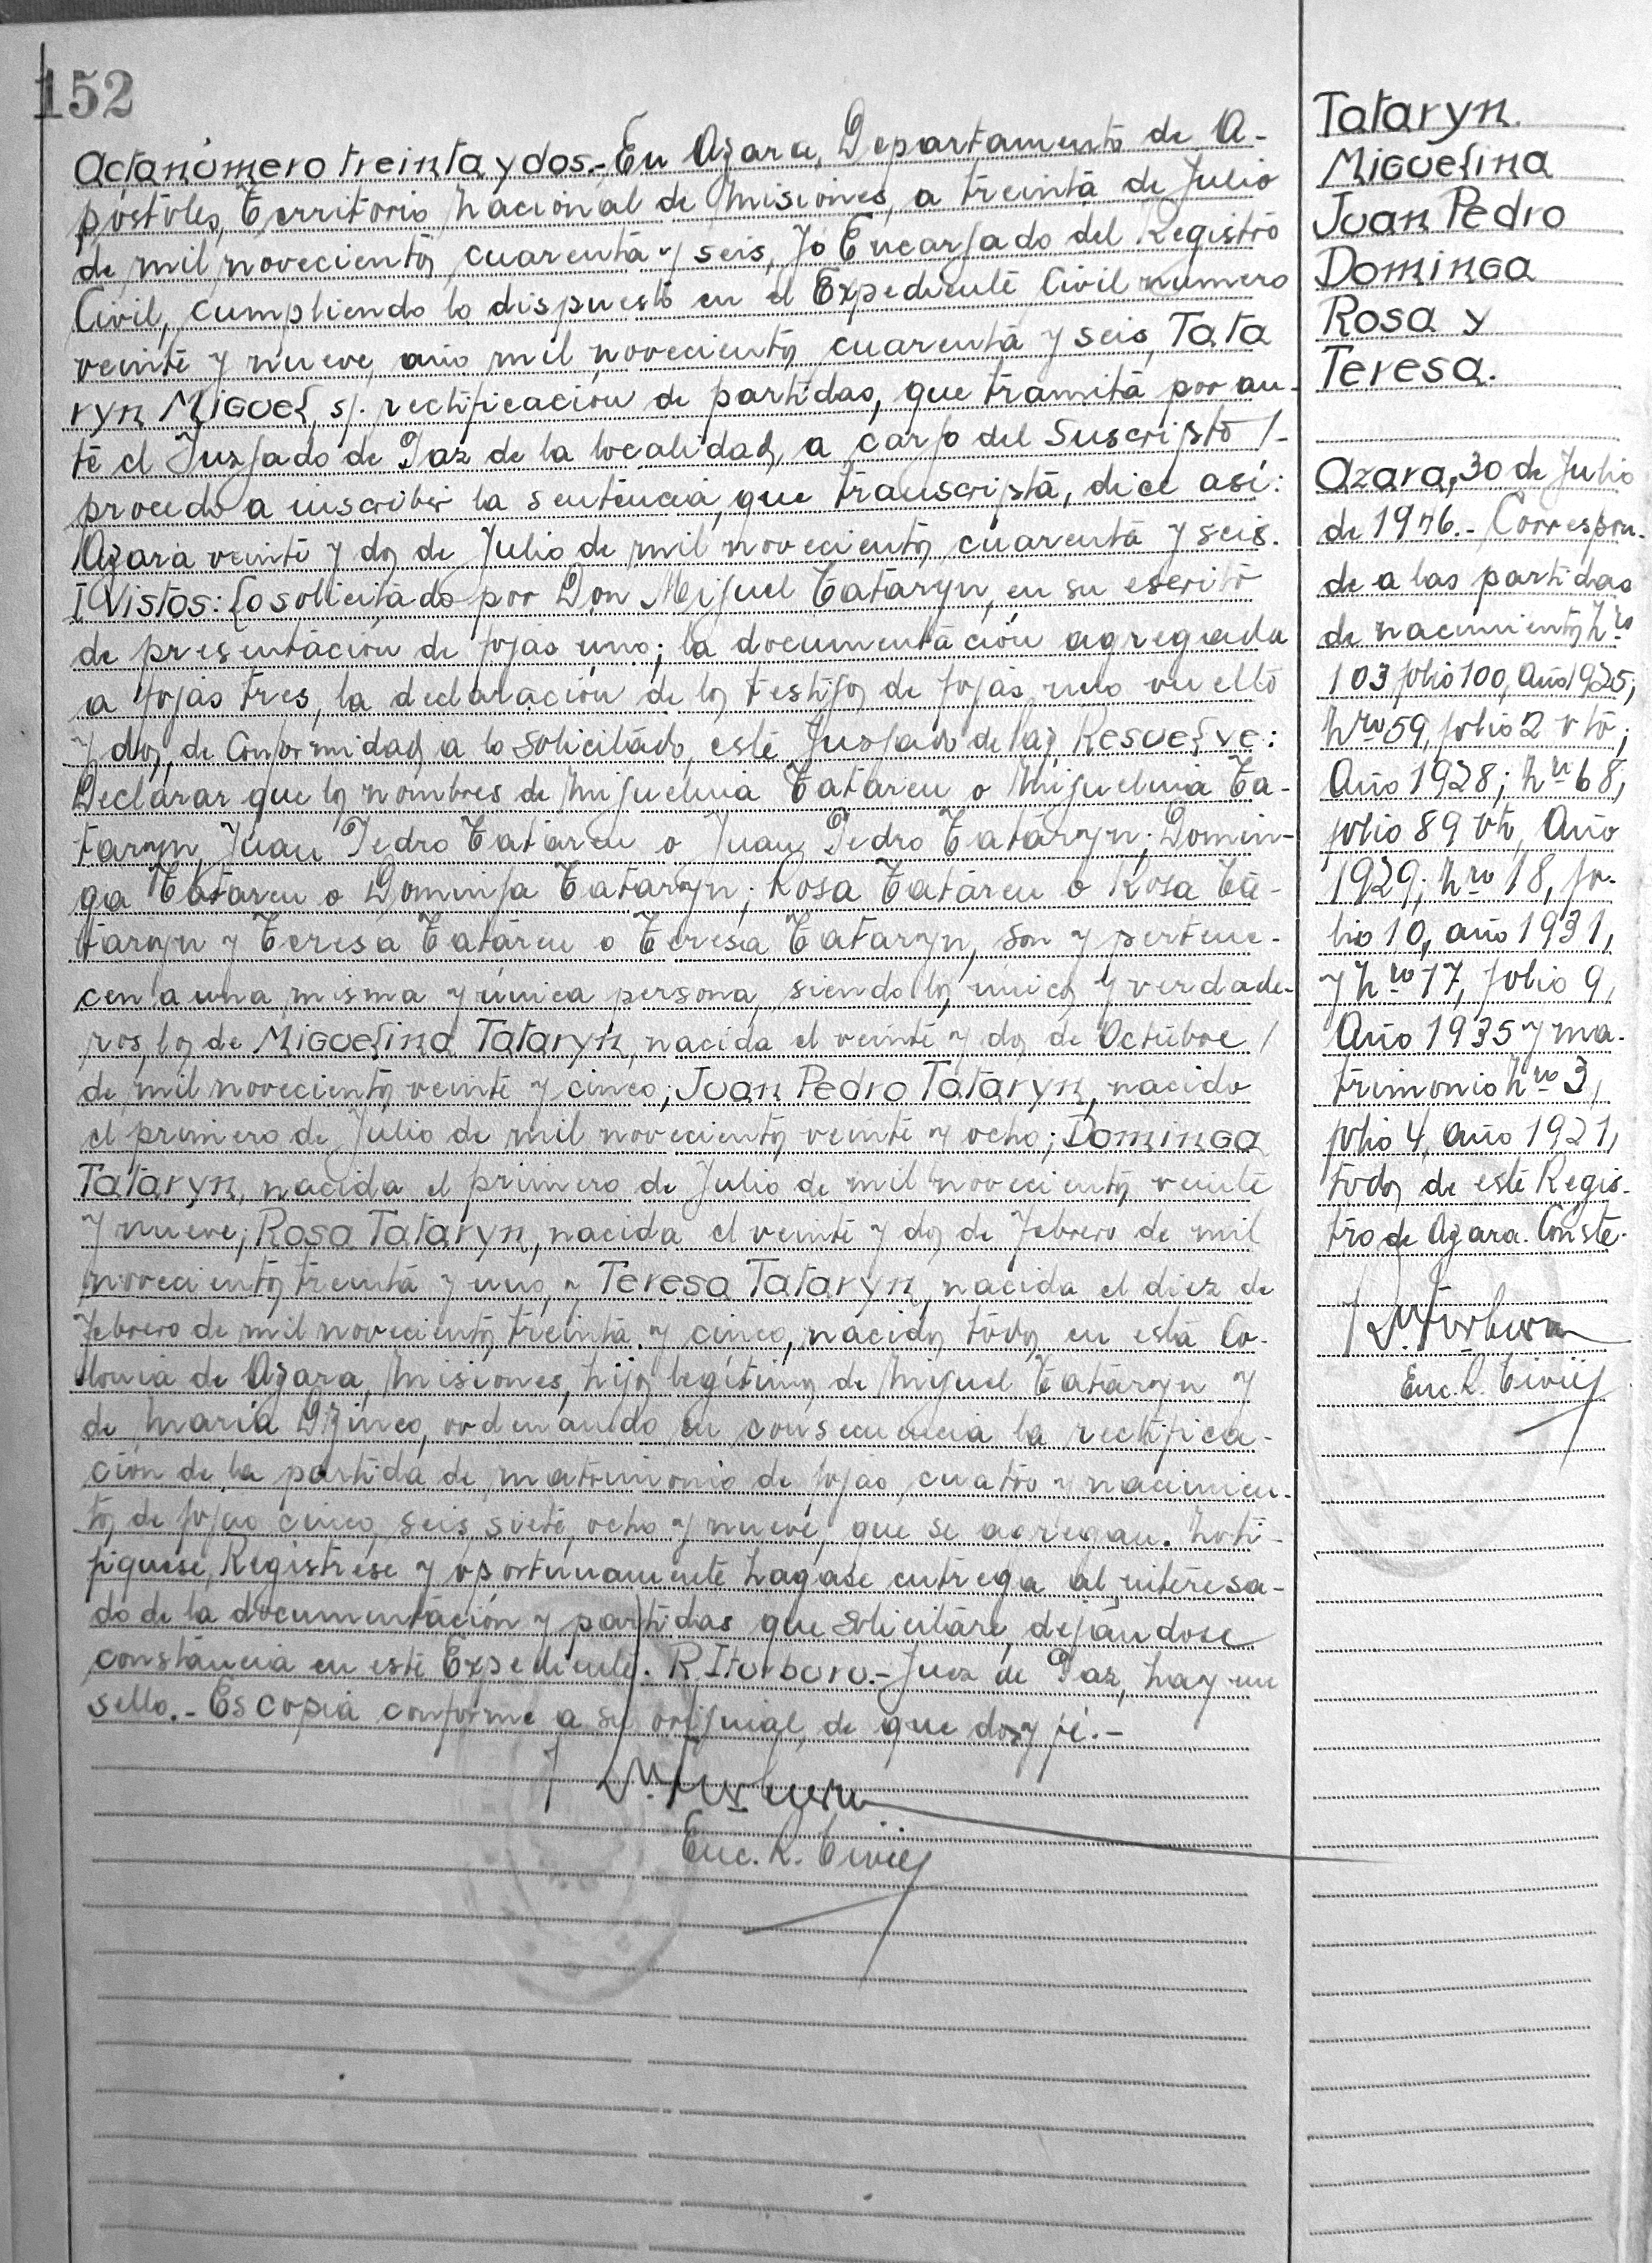 152
Acta número treinta y dos.- En Azara, Departamento de A-
póstoles, Territorio Nacional de Misiones, a treinta de Julio
de mil novecientos cuarenta y seis, Yó Encargado del Registro
Civil, cumpliendo lo dispuesto en el Expediente Civil numero
veinte y nueve, año mil novecientos cuarenta y seis, Tata
ryn Miguel, s/. rectificación de partidas, que tramita por an-
te el Juzgado de Paz de la localidad, a cargo del Suscripto /-
procedo a inscribir la sentencia, que transcripta, dice así:
Azara veinte y dos de Julio de mil novecientos cuarenta y seis.
Y Vistos: Lo solicitado por Don Miguel Tataryn, en su escrito
de presentación de fojas uno; la documentación agregada
a fojas tres, la declaración de los testigos de fojas uno vuelto
y dos, de Conformidad a lo Solicitado, este Juzgado de Paz, Resuelve:
Declarar que los nombres de Miguelina Tatareu o Miguelina Ta-
taryn, Juan Pedro Tatareu o Juan Pedro Tataryn; Domin-
ga Tatareu o Dominga Tataryn; Rosa Tatareu o Rosa Ta-
taryn y Teresa Tatareu o Teresa Tataryn, son y pertene-
cen a una misma y única persona, siendo los únicos y verdade-
ros, los de Miguelina Tataryn, nacida el veinte y dos de Octubre /
de mil novecientos veinte y cinco; Juan Pedro Tataryn, nacido
el primero de Julio de mil novecientos veinte y ocho; Dominga
Tataryn, nacida el primero de Julio de mil novecientos veinte
y nueve; Rosa Tataryn, nacida el veinte y dos de Febrero de mil
novecientos treinta y uno, y Teresa Tataryn, nacida el diez de
Febrero de mil novecientos treinta y cinco, nacidos todos en esta Co-
lonia de Azara, Misiones, hijos legítimos de Miguel Tataryn y
de María Dzinco, ordenando en consecuencia la rectifica-
ción de la partida de matrimonio de fojas cuatro y nacimien-
tos de fojas cinco, seis siete, ocho y nueve, que se agregan. Noti-
fíquese, Regístrese y oportunamente hagase entrega al interesa-
do de la documentación y partidas que solicitare, dejándose
constancia en este Expediente. R. Iturburu.- Juez de Paz, hay un
sello.- Es copia conforme a su original, de que doy fé.-
Enc. R. Civil
Tataryn.
Miguelina
Juan Pedro
Dominga
Rosa y
Teresa.
Azara, 30 de Julio
de 1946.- Correspon-
de a las partidas
de nacimientos Nros
103 folio 100, Año 1925;
Nro 59, folio 2 vto;
Año 1928; Nro 68,
folio 89 vto, Año
1929; Nro 18, fo-
lio 10, año 1931,
y Nro 17, folio 9,
Año 1935 y ma-
trimonio Nro 3,
folio 4, año 1921,
todos de este Regis-
tro de Azara. Conste.
Enc. R. Civil